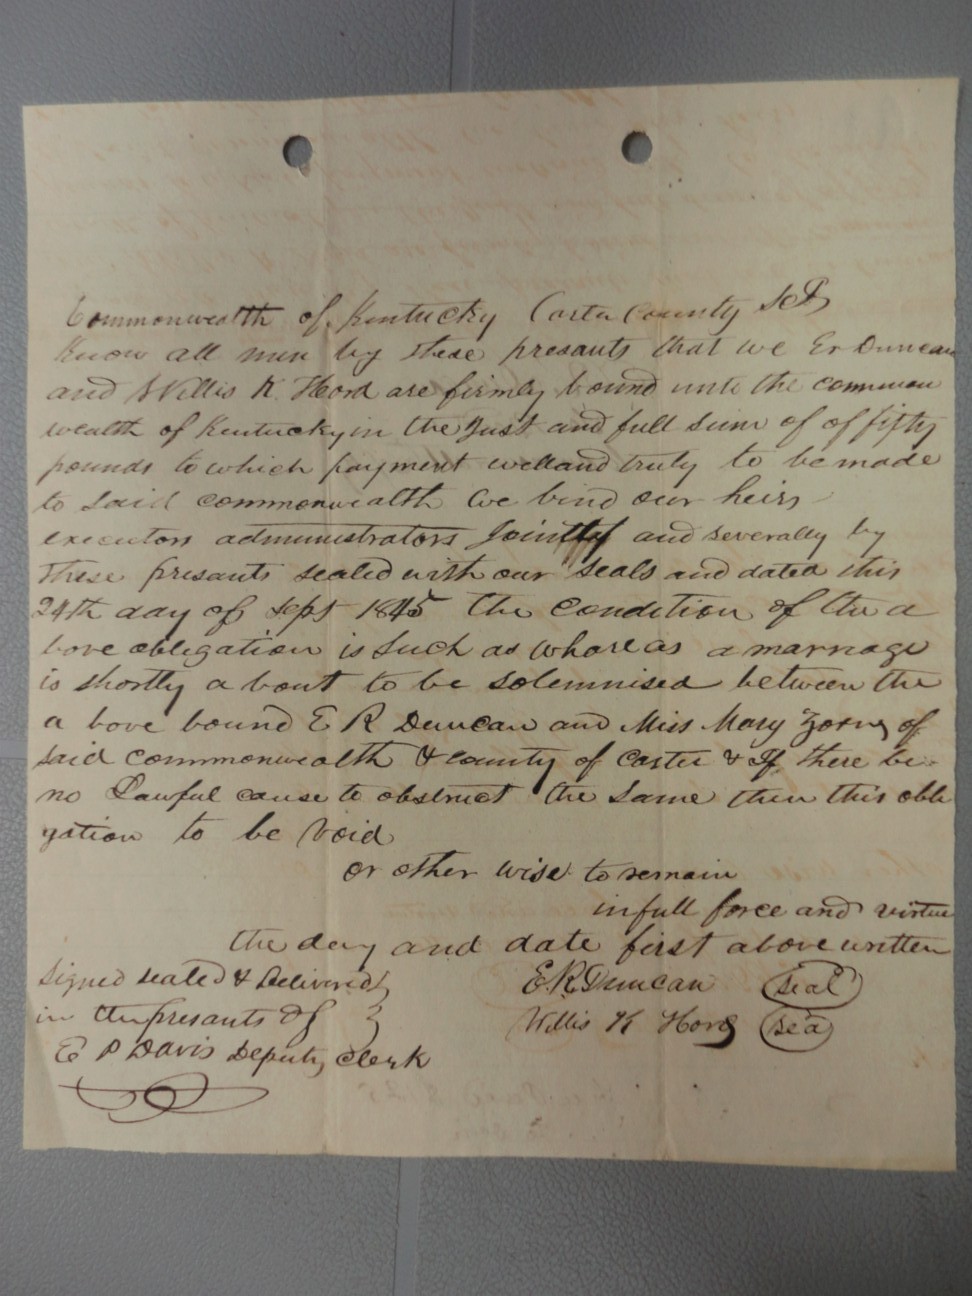 Commonwealth of Kentucky Carter County Sct
Know all men by these presants that we Er Duncan
and Willis K. Hord are firmly bound unto the common
wealth of Kentucky in the Just and full sum of of fifty
pounds to which payment well and truly to be made
to said commonwealth We bind our heirs
executors administrators Jointly and severally by
these presants sealed with our seals and dated this
24th day of Sept 1845 The Condition of the a
bove obligation is Such as whareas a marriage
is shortly a bout to be solemnised between the
a bove bound E R Duncan and Miss Mary Zorn of
said commonwealth & county of Carter & If there be
no Lawful cause to obstruct the same then this obli
gation to be Void
or other wise to remain
in full force and virtue
the day and date first above written
Signed sealed & Delivered
in the presants of
E. R. Duncan Seal
Willis K Hord Sea
E P Davis Deputy Clerk